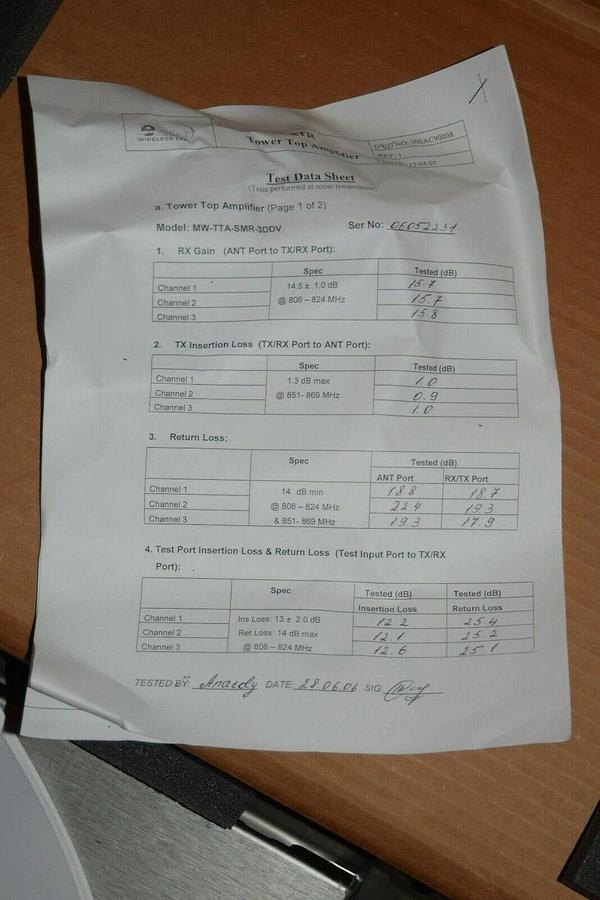 WIRELESS
ATR
Tower Top Amplifier
DWG NO: 300AC90008
REV: 1
19.04.05
Test Data Sheet
(Tests performed at room temperature)
a. Tower Top Amplifier (Page 1 of 2)
Model: MW-TTA-SMR-3DDV Ser No: 06052231
1. RX Gain (ANT Port to TX/RX Port):
Spec Tested (dB)
Channel 1 14.5 ± 1.0 dB 15.7
Channel 2 @ 806 – 824 MHz 15.7
Channel 3 15.8
2. TX Insertion Loss (TX/RX Port to ANT Port):
Spec Tested (dB)
Channel 1 1.3 dB max 1.0
Channel 2 @ 851- 869 MHz 0.9
Channel 3 1.0
3. Return Loss:
Spec Tested (dB)
ANT Port RX/TX Port
Channel 1 14 dB min 18.8 18.7
Channel 2 @ 806 – 824 MHz 22.4 19.3
Channel 3 & 851- 869 MHz 19.3 17.9
4. Test Port Insertion Loss & Return Loss (Test Input Port to TX/RX
Port):
Spec Tested (dB) Tested (dB)
Insertion Loss Return Loss
Channel 1 Ins Loss: 13 ± 2.0 dB 12.2 25.4
Channel 2 Ret Loss: 14 dB max 12.1 25.2
Channel 3 @ 806 – 824 MHz 12.6 25.1
TESTED BY: DATE: 28.06.06 SIG: